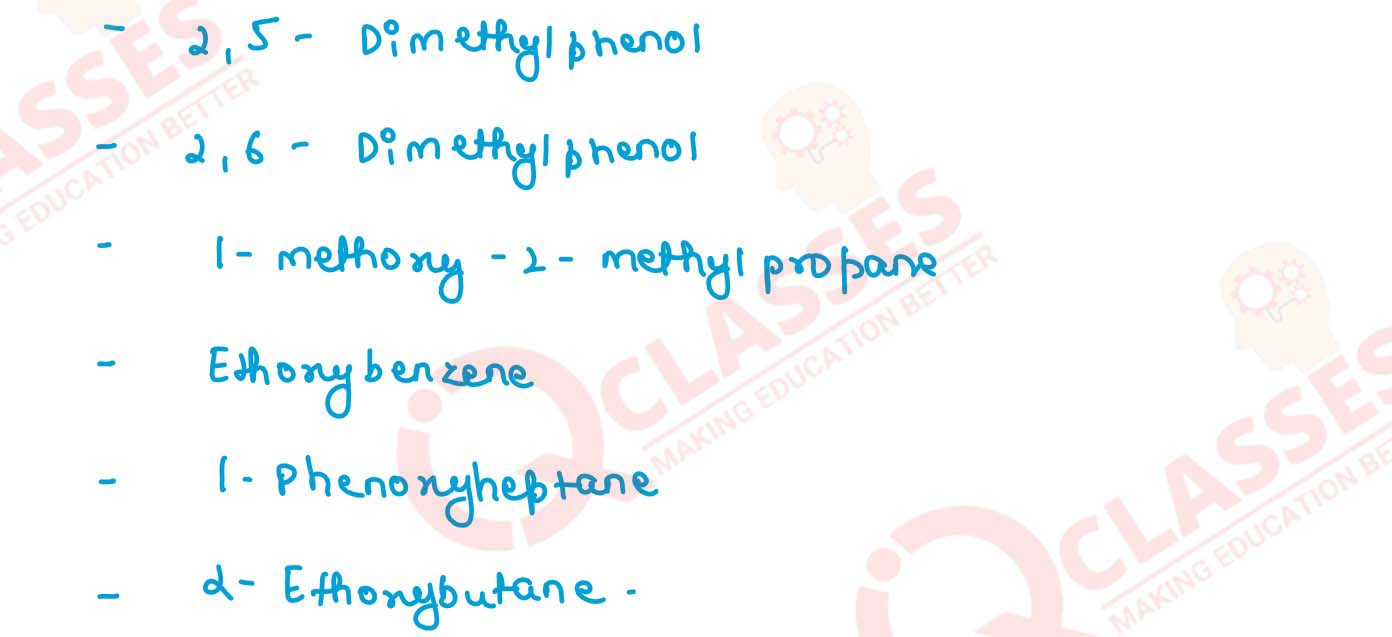 - 2,5 - Dimethylphenol
- 2,6 - Dimethylphenol
- 1- methoxy - 2 - methyl propane
- Ethoxybenzene
- 1- Phenoxyheptane
- 2- Ethoxybutane .
ASSES
G EDUCATION BETTER
CLASSES
MAKING EDUCATION BETTER
CLASSES
MAKING EDUCATION BE